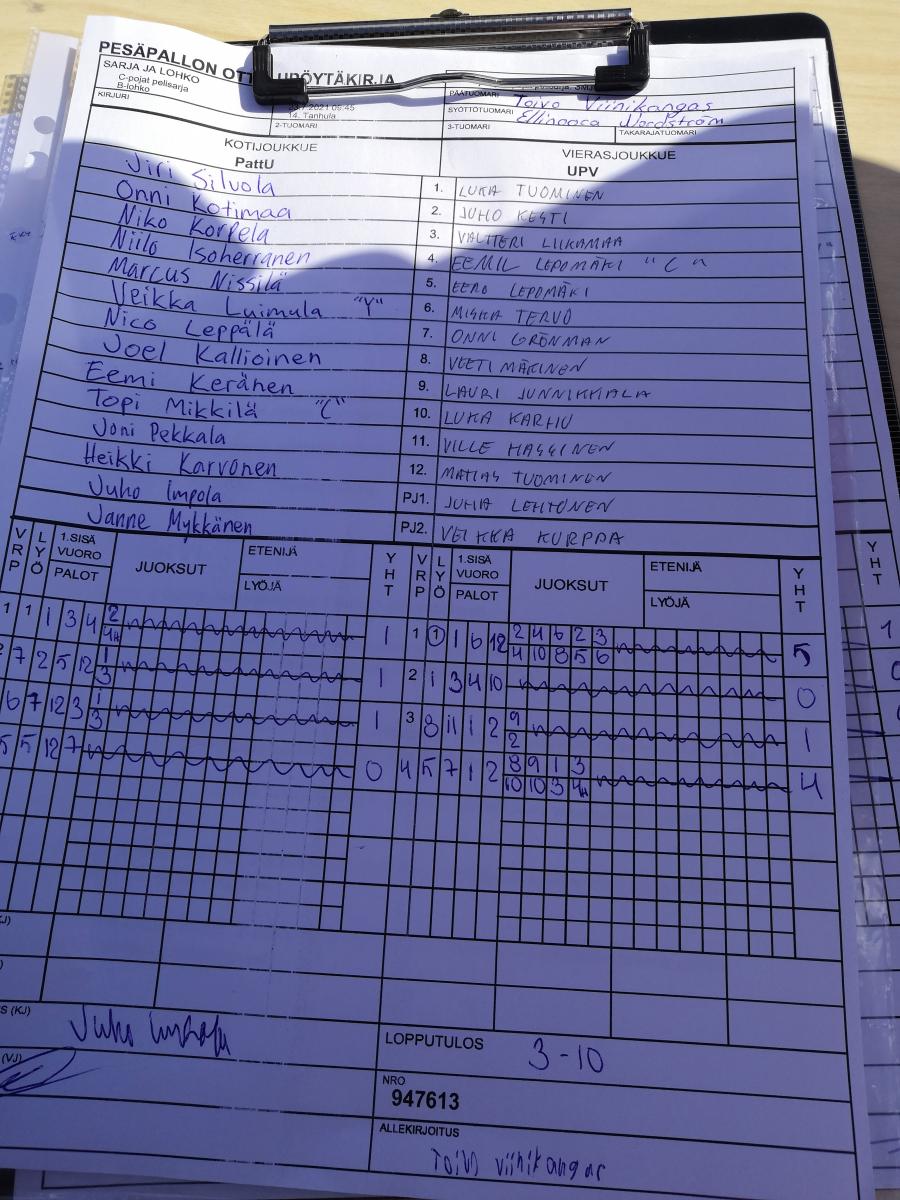 PESÄPALLON OTT UPÖYTÄKIRJA
SARJA JA LOHKO
C-pojat pelisarja
B-lohko
KIRJURI
2021 09:45
14. Tanhula
2-TUOMARI
PÄÄTUOMARI Toivo Viinikangas
SYÖTTÖTUOMARI Ellinoora Nordström
3-TUOMARI TAKARAJATUOMARI
KOTIJOUKKUE VIERASJOUKKUE
PattU UPV
Jiri Silvola 1. LUKA TUOMINEN
Onni Kotimaa 2. JUHO KESTI
Niko Korpela 3. VALTTERI LIIKAMAA
Niilo Isoherranen 4. EEMIL LEPOMÄKI "C"
Marcus Nissilä 5. EERO LEPOMÄKI
Veikka Luimula "Y" 6. MISKA TERVO
Nico Leppälä 7. ONNI GRÖNMAN
Joel Kallioinen 8. VEETI MÄKINEN
Eemi Keränen 9. LAURI JUNNIKKALA
Topi Mikkilä "C" 10. LUKA KARHU
Joni Pekkala 11. VILLE HASSINEN
Heikki Karvonen 12. MATIAS TUOMINEN
Juho Impola PJ1. JUHA LEHTONEN
Janne Mykkänen PJ2. VEIKKA KURPPA
VRP LYÖ 1.SISÄ VUORO PALOT JUOKSUT ETENIJÄ LYÖJÄ YHT VRP LYÖ 1.SISÄ VUORO PALOT JUOKSUT ETENIJÄ LYÖJÄ YHT
1 1 1 3 4 2 1 1 1 1 6 12 2 4 6 2 3 5
4H 4 10 8 5 6
7 2 5 12 1 1 2 1 3 4 10 0
3
6 7 12 3 1 1 3 8 11 1 2 9 1
3 2
5 5 12 7 0 4 5 7 1 2 8 9 1 3 4
10 10 3 4H
(KJ) Juho Impola
(VJ)
LOPPUTULOS 3-10
NRO
947613
ALLEKIRJOITUS
Toivo viinikangas
YHT
1